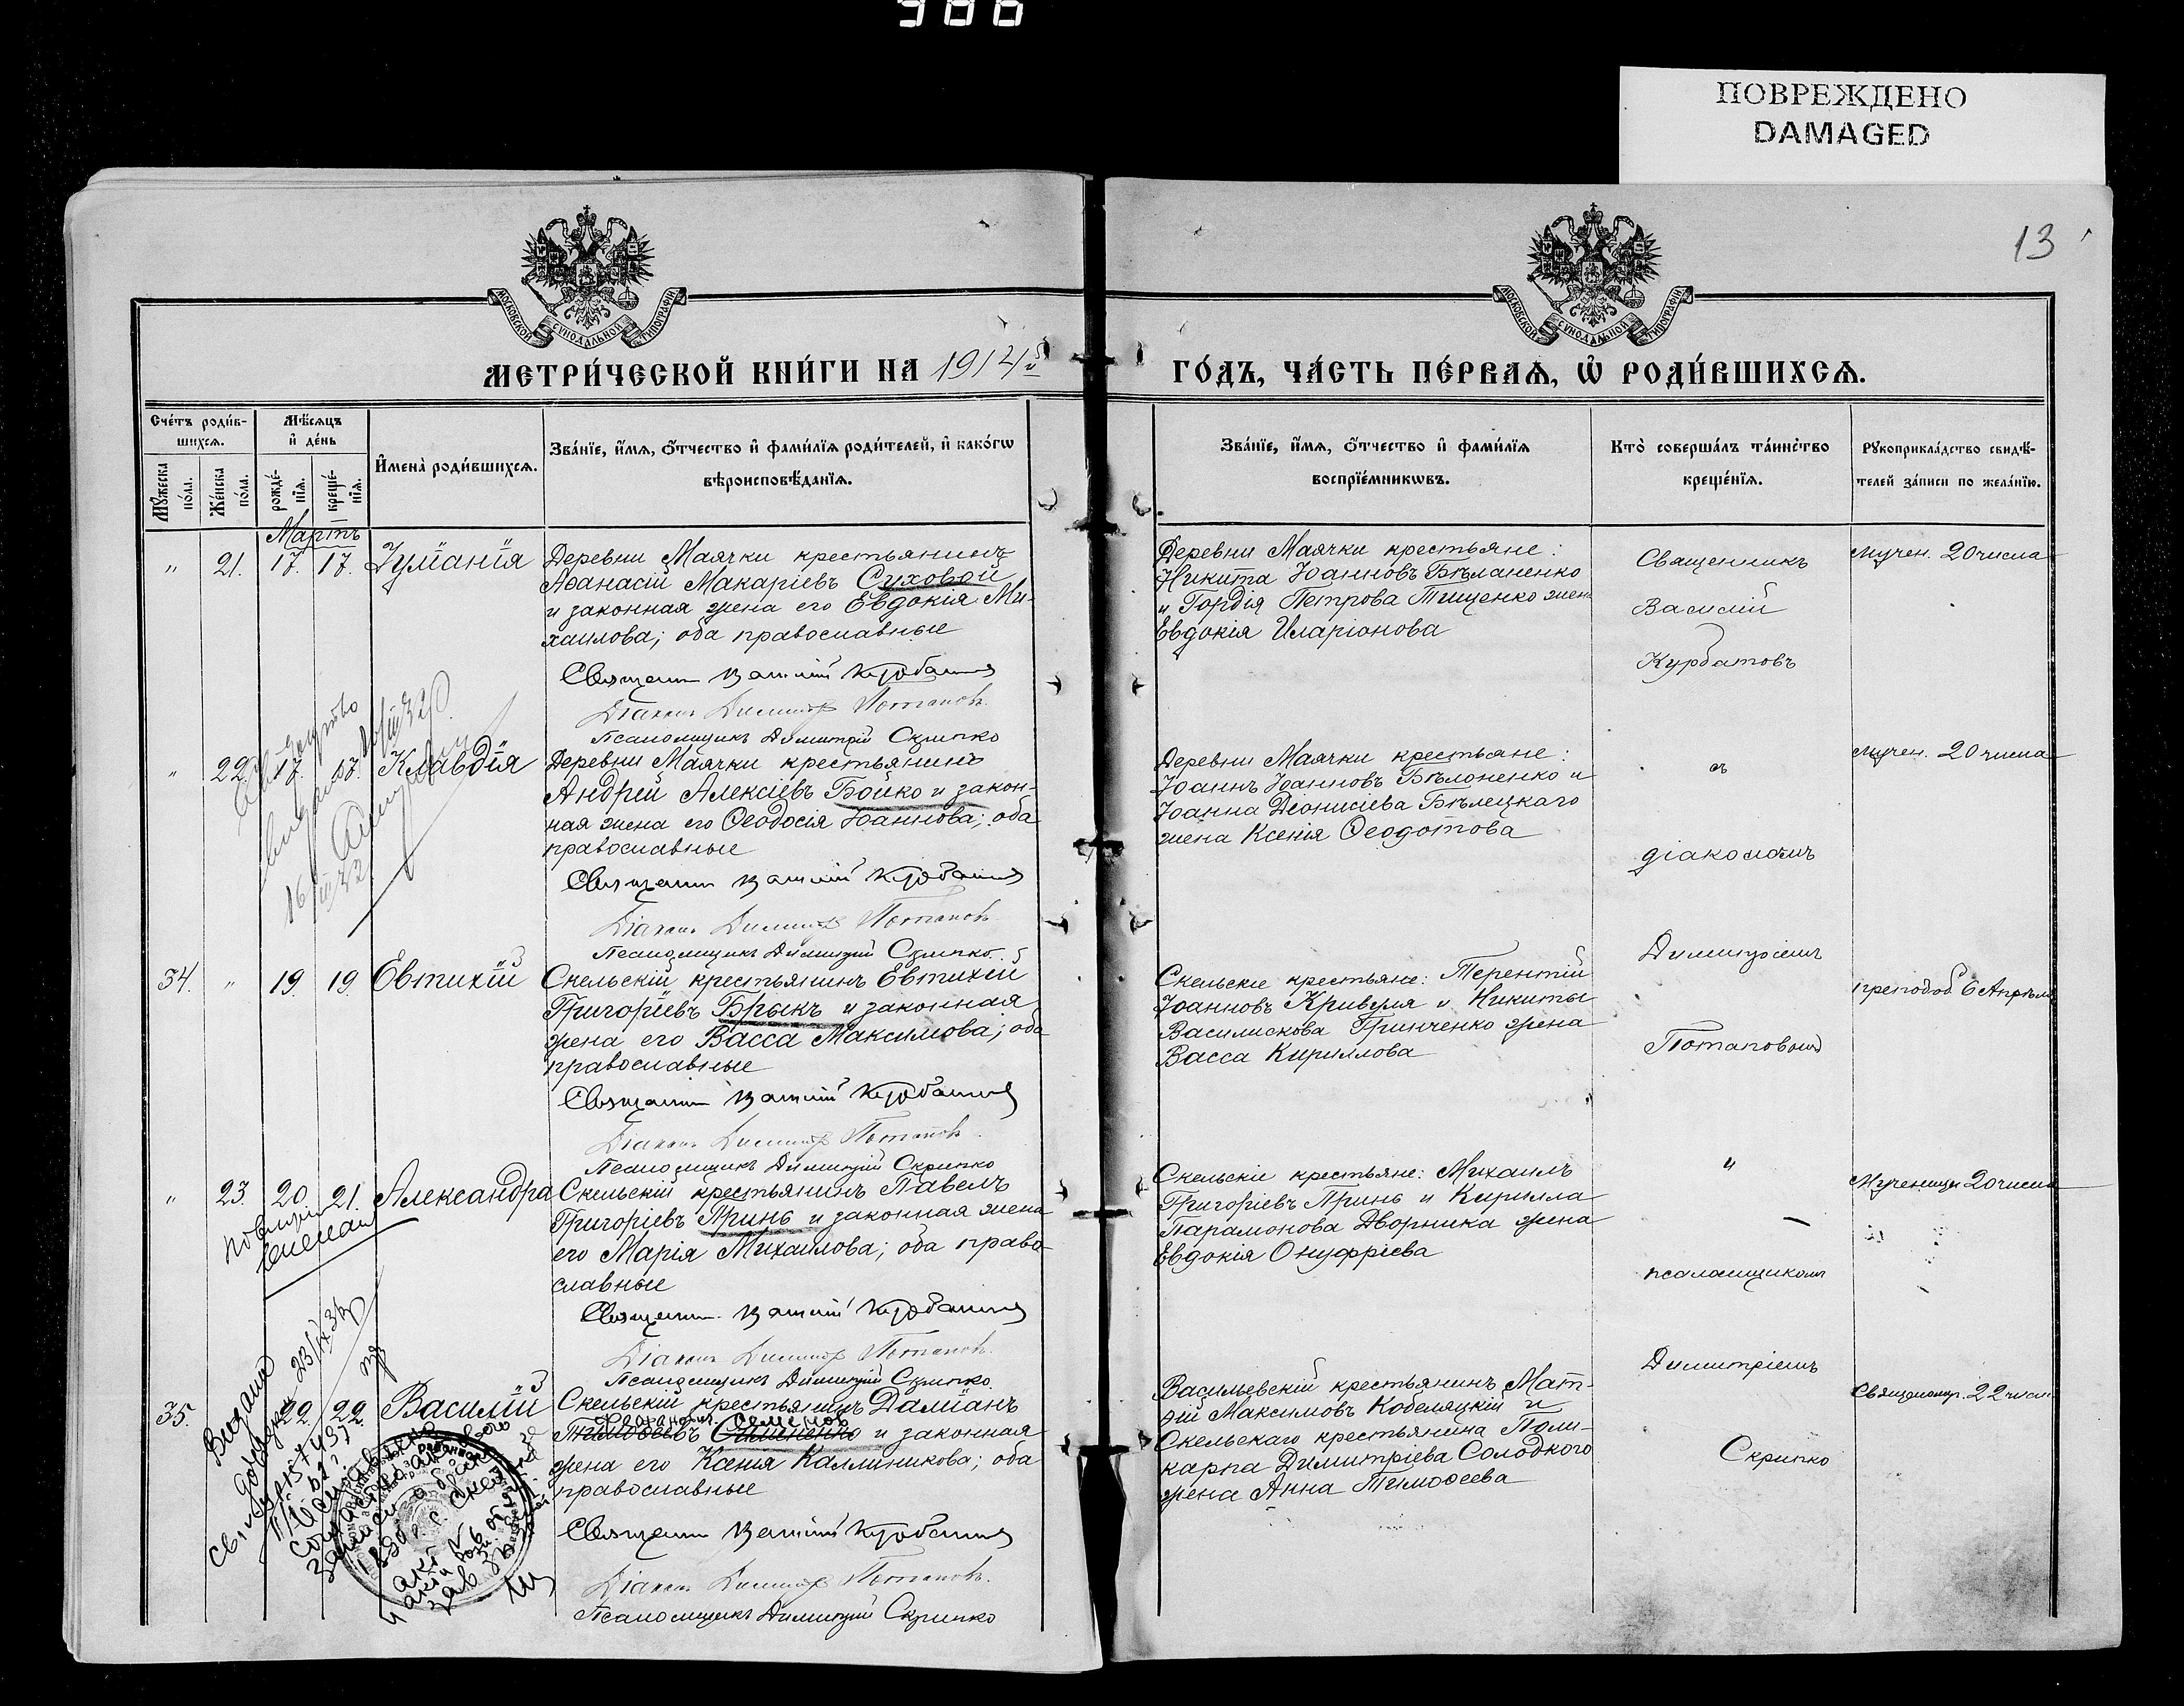 986
ПОВРЕЖДЕНО
DAMAGED
13
МОСКОВСКОЙ СѴНОДАЛЬНОЙ ТИПОГРАФІИ
МОСКОВСКОЙ СѴНОДАЛЬНОЙ ТИПОГРАФІИ
МЕТРИ́ЧЕСКОЙ КНИ́ГИ НА 1914й
ГО́ДЪ, ЧА́СТЬ ПЕ́РВАѦ, Ѡ҆ РОДИ́ВШИХСѦ.
Сче́тъ роди́в-
шихсѧ.
Мꙋ́жеска по́ла.
Же́нска по́ла.
Мѣ́сѧцъ
и҆ де́нь
рожде́-нїѧ.
креще́-нїѧ.
И҆мена̀ роди́вшихсѧ.
Зва́нїе, и҆́мѧ, ѻ҆́тчество и҆ фами́лїѧ роди́телей, и҆ како́гѡ
вѣроисповѣ́данїѧ.
Зва́нїе, и҆́мѧ, ѻ҆́тчество и҆ фами́лїѧ
воспрїе́мникѡвъ.
Кто̀ соверша́лъ та́инство
креще́нїѧ.
Рꙋкоприкла́дство свидѣ́-
телей за́писи по жела́нїю.
Мартъ
" 21. 17. 17.
Деревни Маячки крестьянинъ
Аѳанасій Макаріевъ Суховой
и законная жена его Евдокія Ми-
хаилова; оба православные
Священ. Василій Курбатовъ
Діаконъ Димитр. Потаповъ.
Псаломщикъ Димитрій Скрипко
Деревни Маячки крестьяне:
Никита Іоанновъ Бѣланенко
и Гордія Петрова Тищенко жен.
Евдокія Иларіонова
Священникъ
Василій
Курбатовъ
Мучен. 20 числа
" 22. 17. 17. Клавдія
Деревни Маячки крестьянинъ
Андрей Алексіевъ Бойко и закон-
ная жена его Ѳеодосія Іоаннова; оба
православные
Священ. Василій Курбатовъ
Діаконъ Димитр. Потаповъ.
Псаломщикъ Димитрій Скрипко.
Деревни Маячки крестьяне:
Іоаннъ Іоанновъ Бѣлоненко и
Іоанна Діонисіева Бѣлецкаго
жена Ксенія Ѳеодотова
съ
діакономъ
Димитріемъ
Потаповымъ
Мучен. 20 числа
34. " 19. 19. Евтихій
Скельскій крестьянинъ Евтихій
Григоріевъ Брыкъ и законная
жена его Васса Максимова; оба
православные
Священ. Василій Курбатовъ
Діаконъ Димитр. Потаповъ.
Псаломщикъ Димитрій Скрипко
Скельскіе крестьяне: Терентій
Іоанновъ Кривуля и Никиты
Василискова Гринченко жена
Васса Кириллова
преподоб. 6 Апрѣля
" 23. 20. 21. Александра
Скельскій крестьянинъ Павелъ
Григоріевъ Принь и законная жена
его Марія Михаилова; оба право-
славные
Священ. Василій Курбатовъ
Діаконъ Димитр. Потаповъ.
Псаломщикъ Димитрій Скрипко.
Скельскіе крестьяне: Михаилъ
Григоріевъ Принь и Кирилла
Парамонова Дворника жена
Евдокія Онуфріева
и
псаломщикомъ
Димитріемъ
Скрипко
Мученицы 20 числа
35. 22. 22. Василій
Скельскій крестьянинъ Даміанъ
Семенов
Тимоѳеевъ Симененко и законная
жена его Ксенія Каллиникова; оба
православные
Священ. Василій Курбатовъ
Діаконъ Димитр. Потаповъ.
Псаломщикъ Димитрій Скрипко
Васильевскій крестьянинъ Мат-
ѳій Максимовъ Кобеляцкій и
Скельскаго крестьянина Поли-
карпа Димитріева Солодкого
жена Анна Тимоѳеева
Священномуч. 22 числ.
Видано